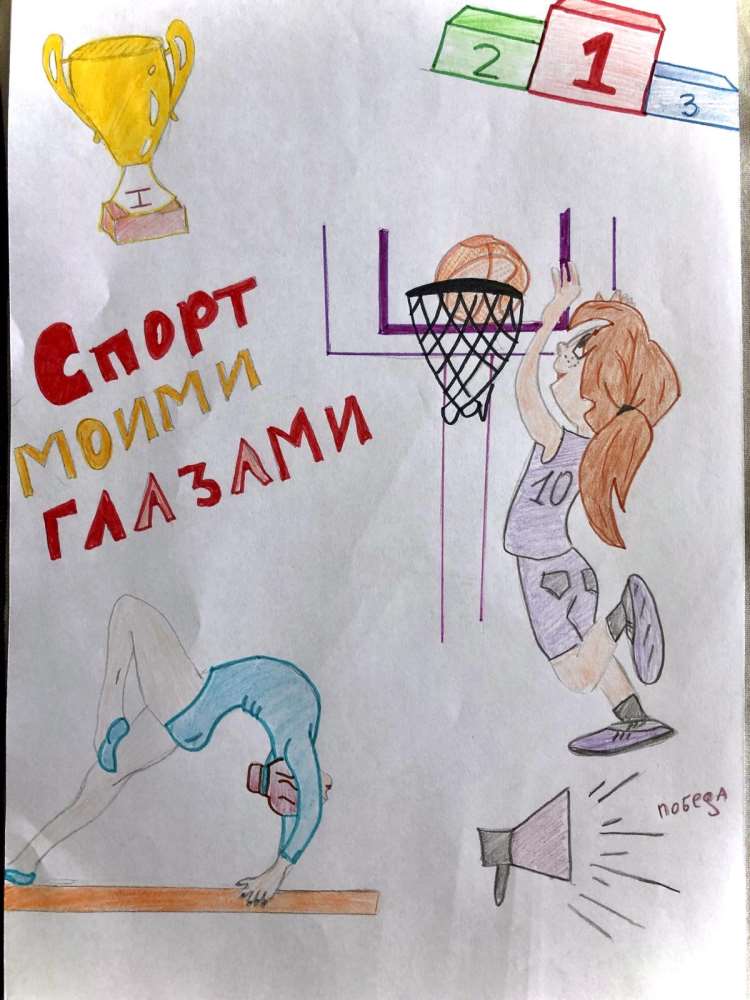 I
2
1
3
Спорт
моими
глазами
10
победа